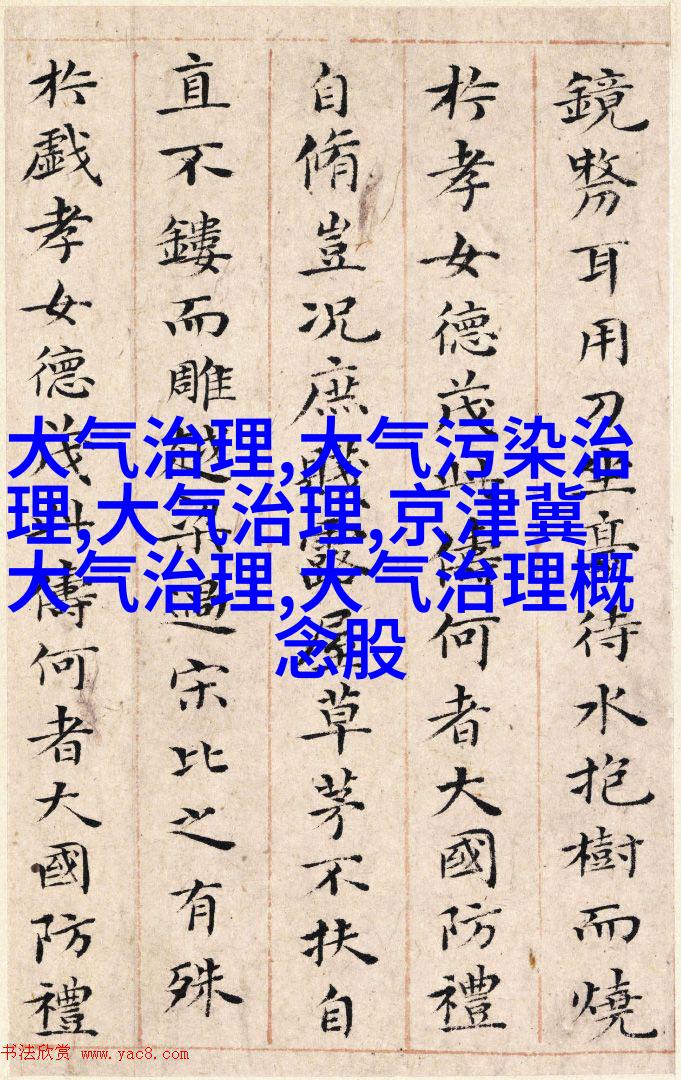 鏡剺耳用刀坐臺待水抱樹而燒
於孝女德茂此儔何者大國防禮
自脩豈況庶賤露屋草茅不扶自
直不鏤而雕越梁過宋比之有殊
於戲孝女德茂此儔何者大國防禮
大气治理,大气污染治
理,大气治理,京津冀
大气治理,大气治理概
念股
书法欣赏 www.yac8.com